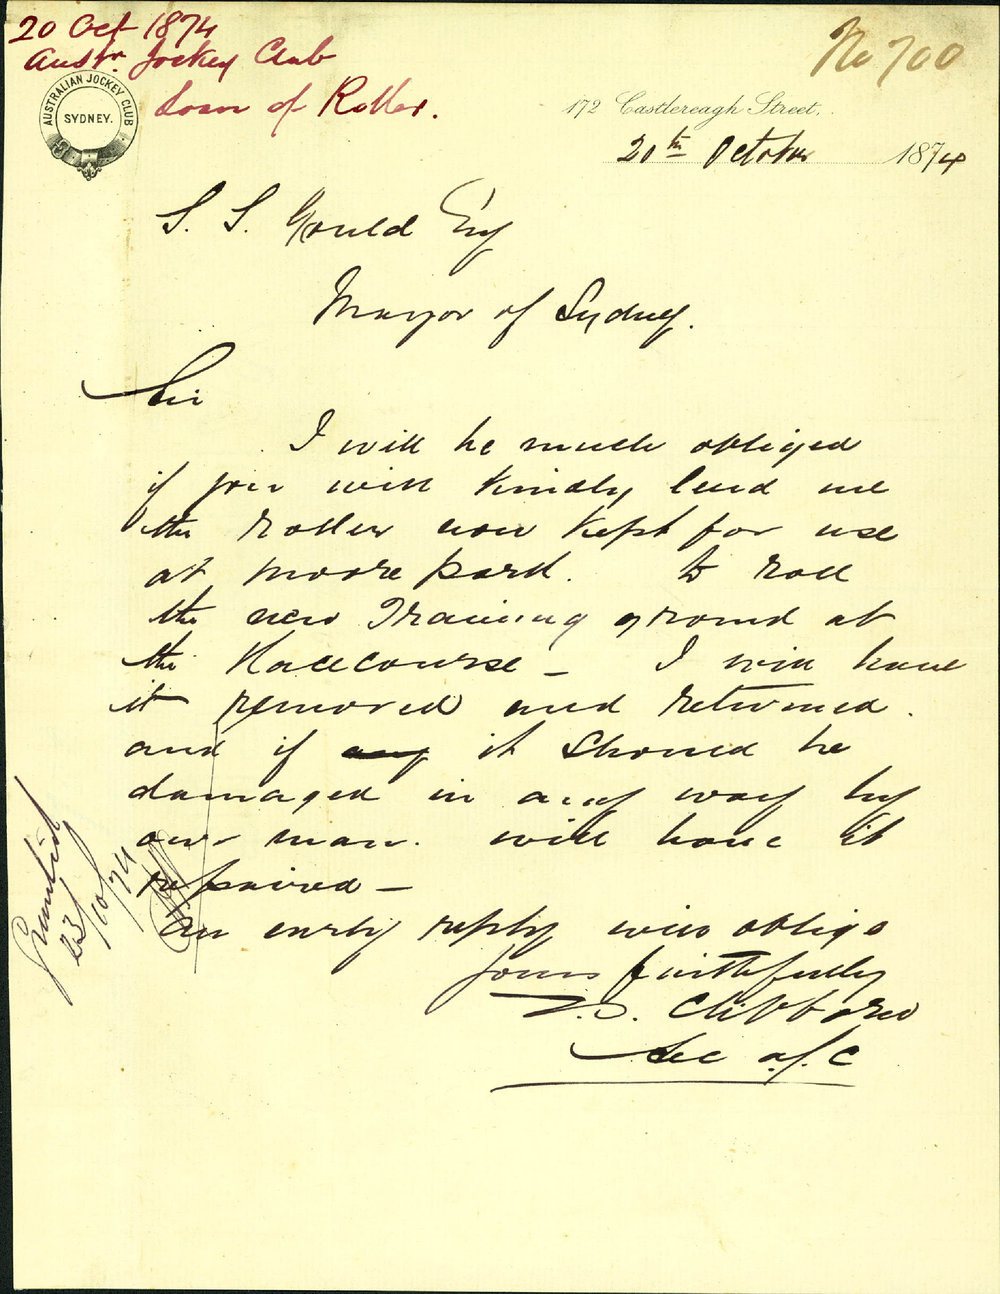 20 Oct 1874
Austn. Jockey Club
Loan of Roller.
No 700
AUSTRALIAN JOCKEY CLUB
SYDNEY.
172 Castlereagh Street.
20th October 1874
S. S. Gould Esq
Mayor of Sydney.
Sir
I will be much obliged
if you will kindly lend me
the roller now kept for use
at Moore park. to roll
the new Training ground at
the Racecourse _ I will have
it removed and returned.
and if any it should be
damaged in any way by
our man. will have it
repaired _
An early reply will oblige
Yours faithfully
T.S. Clibborn
Sec A.J.C
Granted
23/10/74